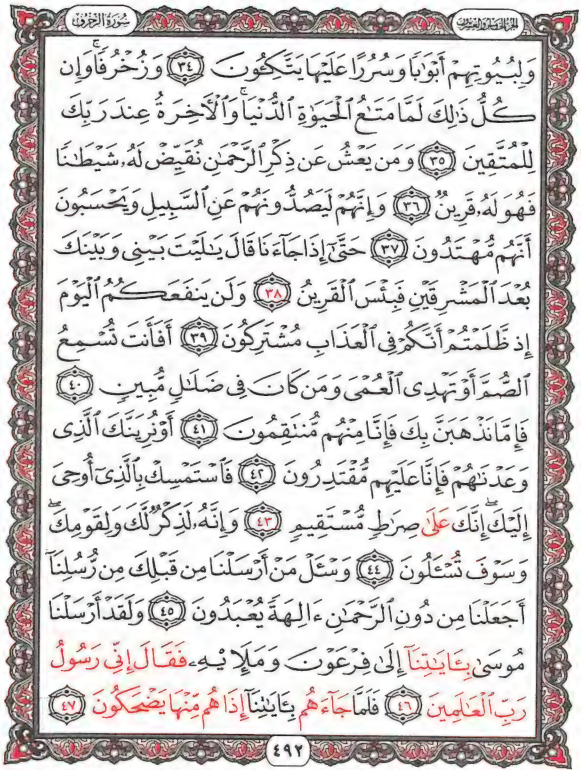 سُورَةُ الزُّخْرُفِ
الجُزْءُ الخَامِسُ وَالعِشْرُونَ
وَلِبُيُوتِهِمْ أَبْوَٰبًا وَسُرُرًا عَلَيْهَا يَتَّكِـُٔونَ ٣٤ وَزُخْرُفًا ۚ وَإِن
كُلُّ ذَٰلِكَ لَمَّا مَتَـٰعُ الْحَيَوٰةِ الدُّنْيَا ۚ وَالْـَٔاخِرَةُ عِندَ رَبِّكَ
لِلْمُتَّقِينَ ٣٥ وَمَن يَعْشُ عَن ذِكْرِ الرَّحْمَـٰنِ نُقَيِّضْ لَهُۥ شَيْطَـٰنًا
فَهُوَ لَهُۥ قَرِينٌ ٣٦ وَإِنَّهُمْ لَيَصُدُّونَهُمْ عَنِ السَّبِيلِ وَيَحْسَبُونَ
أَنَّهُم مُّهْتَدُونَ ٣٧ حَتَّىٰٓ إِذَا جَآءَنَا قَالَ يَـٰلَيْتَ بَيْنِى وَبَيْنَكَ
بُعْدَ الْمَشْرِقَيْنِ فَبِئْسَ الْقَرِينُ ٣٨ وَلَن يَنفَعَكُمُ الْيَوْمَ
إِذ ظَّلَمْتُمْ أَنَّكُمْ فِى الْعَذَابِ مُشْتَرِكُونَ ٣٩ أَفَأَنتَ تُسْمِعُ
الصُّمَّ أَوْ تَهْدِى الْعُمْىَ وَمَن كَانَ فِى ضَلَـٰلٍ مُّبِينٍ ٤٠
فَإِمَّا نَذْهَبَنَّ بِكَ فَإِنَّا مِنْهُم مُّنتَقِمُونَ ٤١ أَوْ نُرِيَنَّكَ الَّذِى
وَعَدْنَـٰهُمْ فَإِنَّا عَلَيْهِم مُّقْتَدِرُونَ ٤٢ فَاسْتَمْسِكْ بِالَّذِىٓ أُوحِىَ
إِلَيْكَ ۖ إِنَّكَ عَلَىٰ صِرَٰطٍ مُّسْتَقِيمٍ ٤٣ وَإِنَّهُۥ لَذِكْرٌ لَّكَ وَلِقَوْمِكَ ۖ
وَسَوْفَ تُسْـَٔلُونَ ٤٤ وَسْـَٔلْ مَنْ أَرْسَلْنَا مِن قَبْلِكَ مِن رُّسُلِنَآ
أَجَعَلْنَا مِن دُونِ الرَّحْمَـٰنِ ءَالِهَةً يُعْبَدُونَ ٤٥ وَلَقَدْ أَرْسَلْنَا
مُوسَىٰ بِـَٔايَـٰتِنَآ إِلَىٰ فِرْعَوْنَ وَمَلَإِي۟هِۦ فَقَالَ إِنِّى رَسُولُ
رَبِّ الْعَـٰلَمِينَ ٤٦ فَلَمَّا جَآءَهُم بِـَٔايَـٰتِنَآ إِذَا هُم مِّنْهَا يَضْحَكُونَ ٤٧
٤٩٢